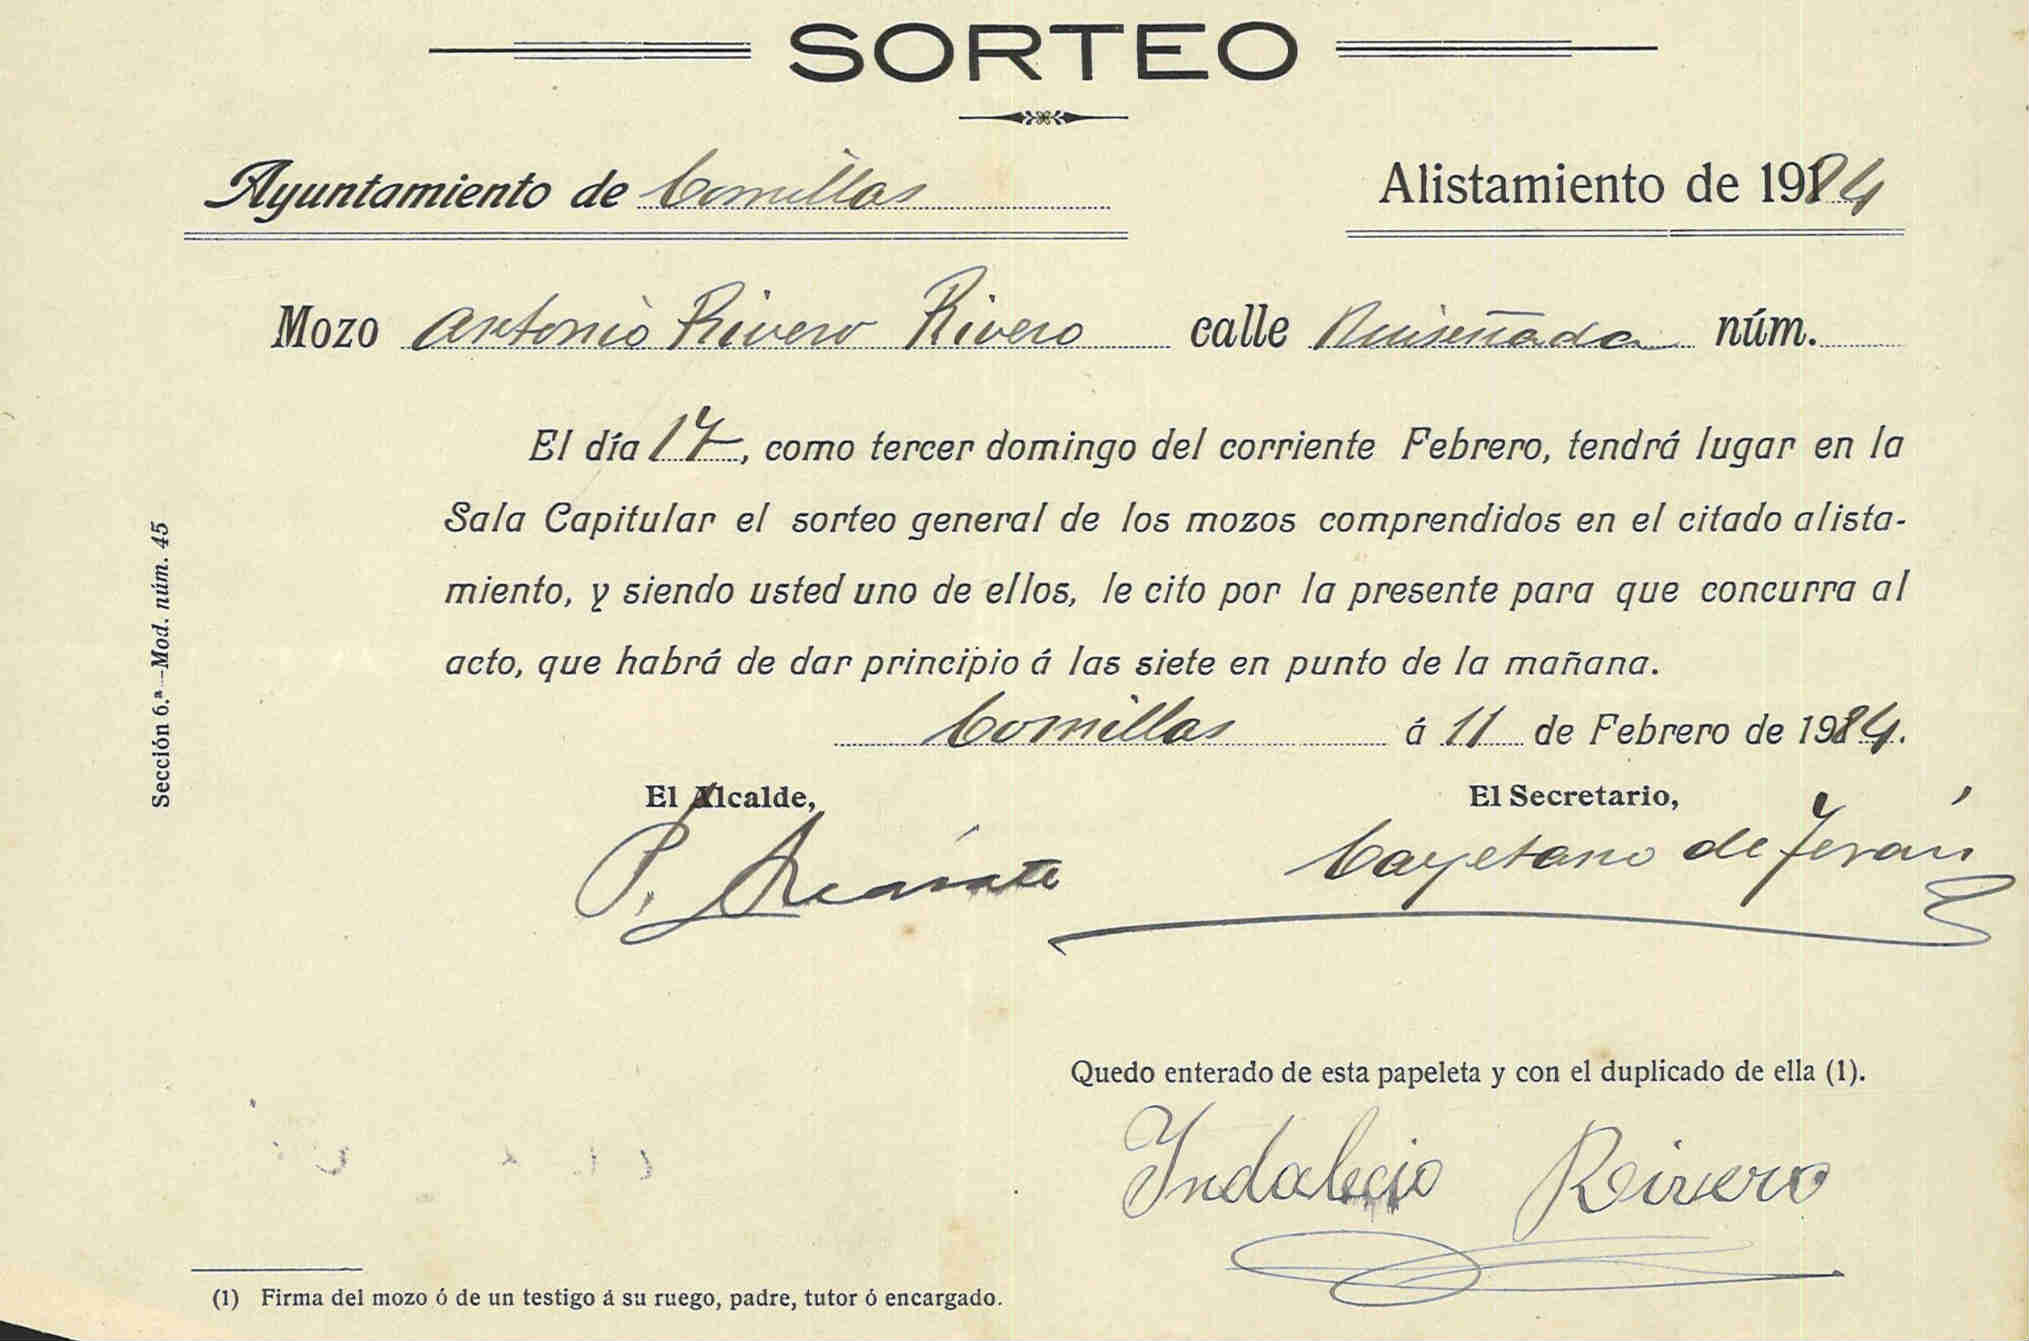 SORTEO
Ayuntamiento de Comillas
Alistamiento de 1924
Mozo Antonio Rivero Rivero calle Ruiseñada núm.
El día 17, como tercer domingo del corriente Febrero, tendrá lugar en la
Sala Capitular el sorteo general de los mozos comprendidos en el citado alista-
miento, y siendo usted uno de ellos, le cito por la presente para que concurra al
acto, que habrá de dar principio á las siete en punto de la mañana.
Comillas á 11 de Febrero de 1924.
El Alcalde,
El Secretario,
P.
Cayetano de Terán
Quedo enterado de esta papeleta y con el duplicado de ella (1).
Indalecio Rivero
(1) Firma del mozo ó de un testigo á su ruego, padre, tutor ó encargado.
Sección 6.ª—Mod. núm. 45